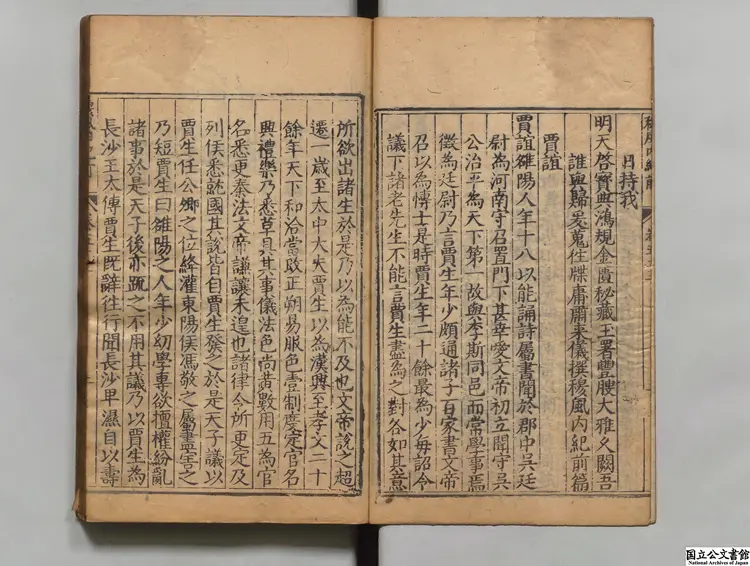 日持我
明天啓寶典鴻規金匱秘藏玉署豐腴大雅久闕吾
誰與歸爰蒐往牒庸肅來儀撰穆風內紀前篇
賈誼
賈誼雒陽人年十八以能誦詩屬書聞於郡中吳廷
尉為河南守召置門下甚幸愛文帝初立聞守吳
公治平為天下第一故與李斯同邑而常學事焉
徵為廷尉乃言賈生年少頗通諸子百家書文帝
召以為博士是時賈生年二十餘最為少每詔令
議下諸老先生不能言賈生盡為之對各如其意
所欲出諸生於是乃以為能不及也文帝說之超
遷一歲至太中大夫賈生以為漢興至孝文二十
餘年天下和洽當改正朔易服色壹制度定官名
興禮樂乃悉草具其事儀法色尚黃數用五為官
名悉更秦法文帝謙讓未遑也諸律令所更定及
列侯悉就國其說皆自賈生發之於是天子議以
賈生任公卿之位絳灌東陽侯馮敬之屬盡害之
乃短賈生曰雒陽之人年少幼學專欲擅權紛亂
諸事於是天子後亦疏之不用其議乃以賈生為
長沙王太傅賈生既辭往行聞長沙卑濕自以壽
国立公文書館
National Archives of Japan